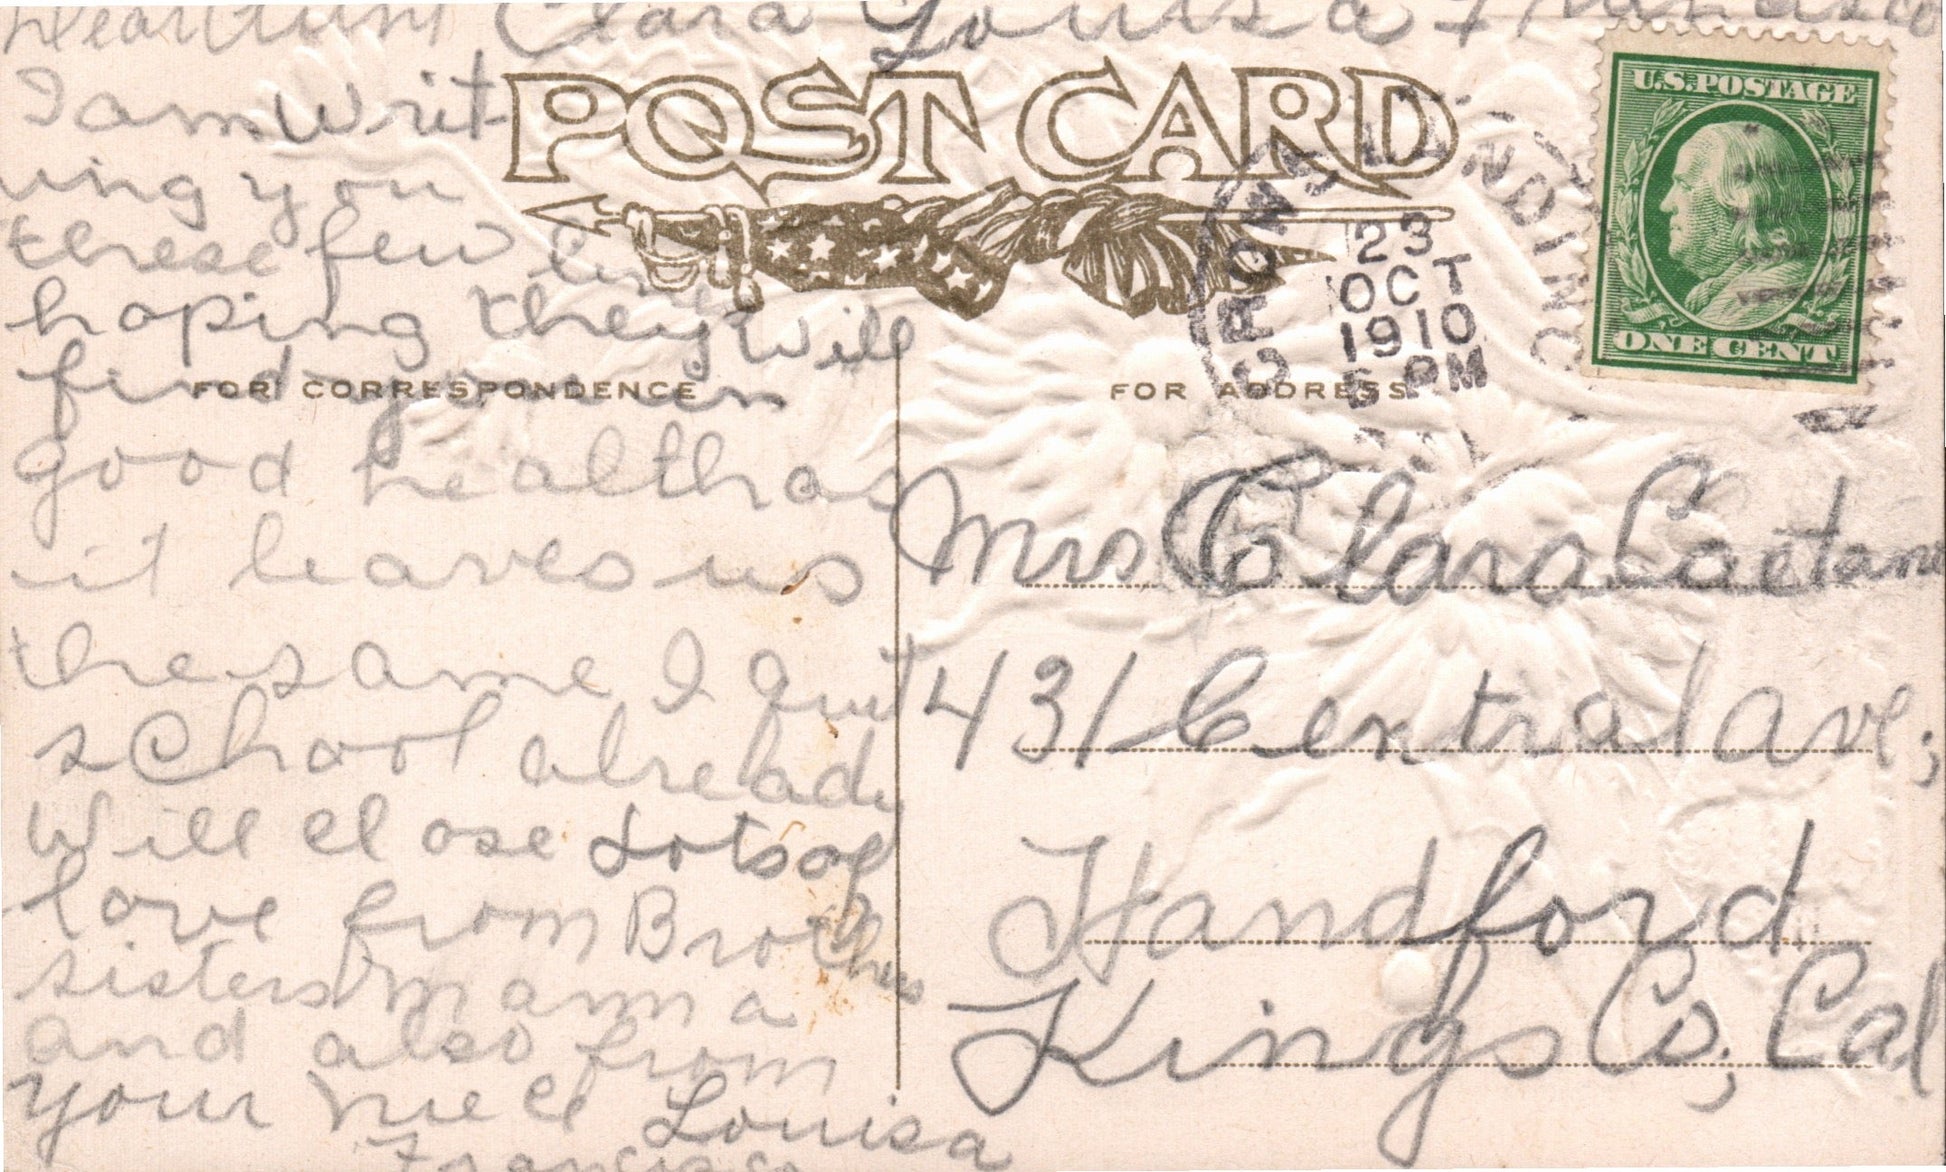 Dear Aunt Clara Louisa Francisco
I am writ
ing you
these few lin
hoping they will
find you in
good health as
it leaves us
the same I quit
school already
will close Lots of
love from Brothers
sisters Mamma
and also from
your niece Louisa
Francisco
POST CARD
FOR CORRESPONDENCE
FOR ADDRESS
CROWS LANDING
23
OCT
1910
5 PM
U.S. POSTAGE
ONE CENT
Mrs Clara Caetano
431 Central Ave;
Handford
Kings Co, Cal